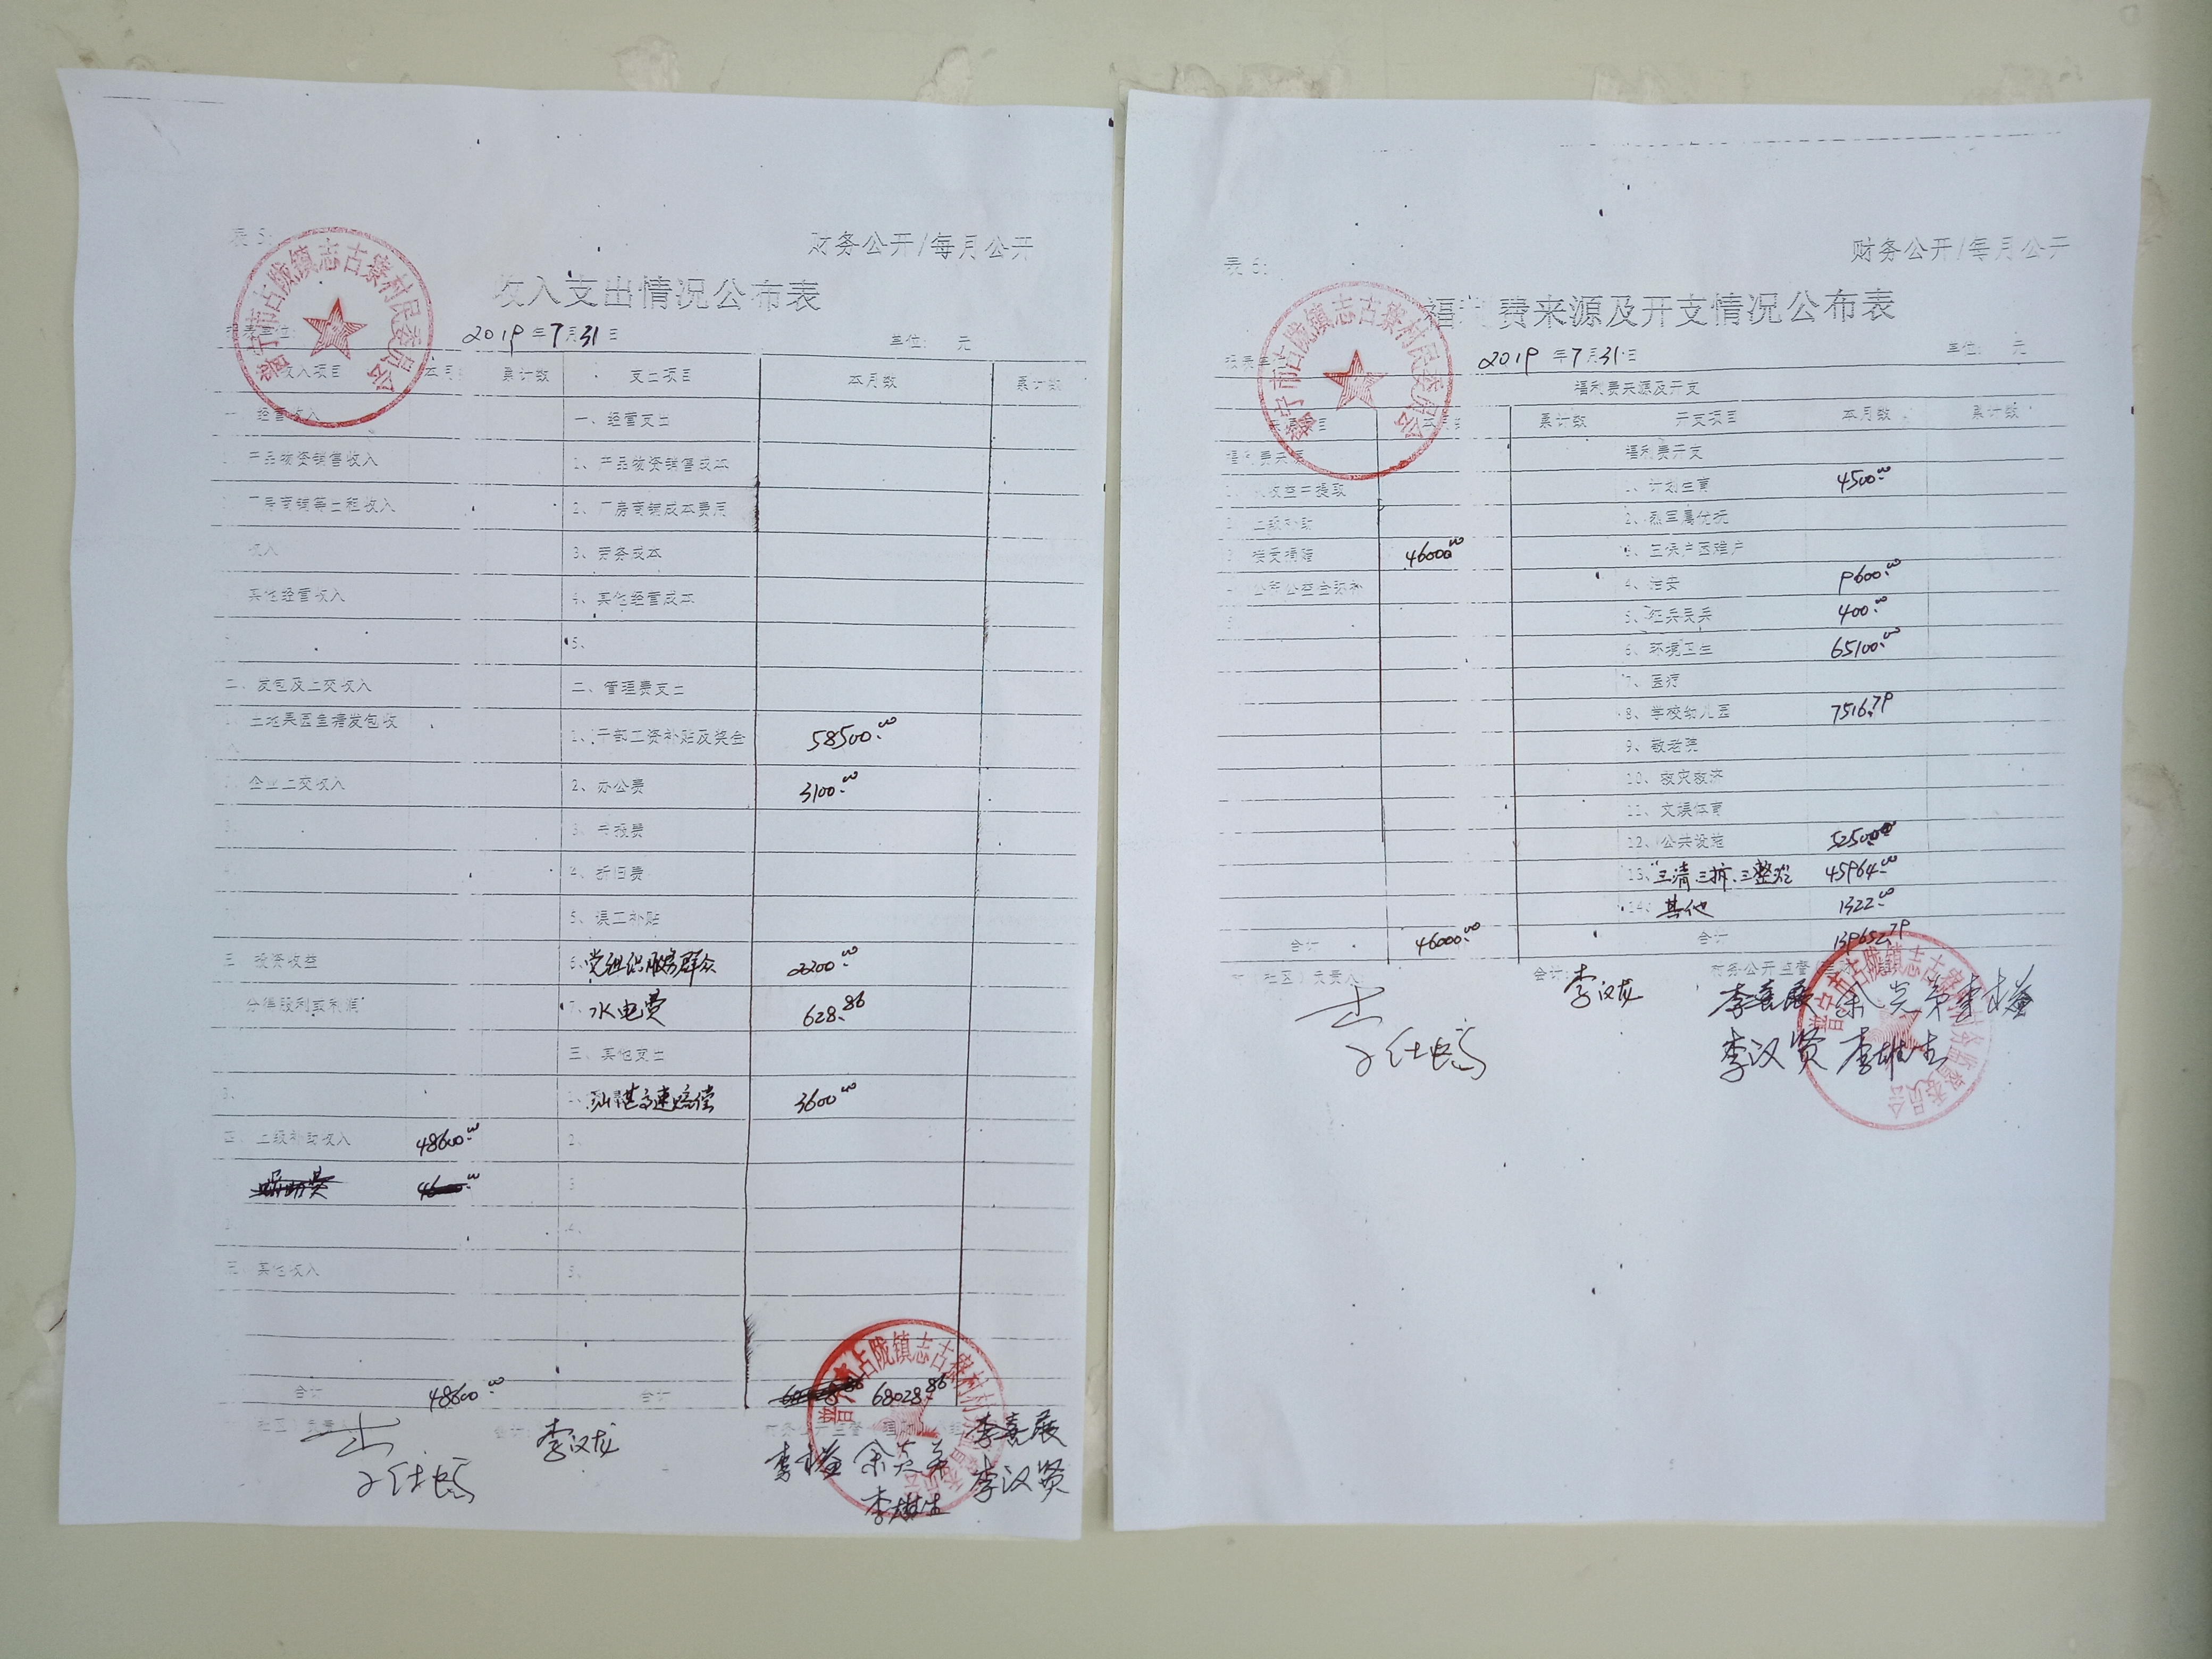 表 5:
财务公开/每月公开
收入支出情况公布表
报表单位:
2019年7月31日
单位: 元
收入项目 本月 累计数 支出项目 本月数 累计数
一 经营收入 一、经营支出
产品物资销售收入 1、产品物资销售成本
厂房商铺等出租收入 2、厂房商铺成本费用
收入 3、劳务成本
其他经营收入 4、其他经营成本
5、
二、发包及上交收入 二、管理费支出
土地果园鱼塘发包收入 1、干部工资补贴及奖金 58500.00
企业上交收入 2、办公费 3100.00
3 3、书报费
4、折旧费
5、误工补贴
三 投资收益 6、党组织服务群众 2200.00
分得股利或利润 7、水电费 628.86
三、其他支出
3、 汕湛高速赔偿 3600.00
四、上级补助收入 48600.00 2、
3
2 4、
五 其他收入 5、
合计 48600.00 合计 68028.86
(社区)负责人 会计: 李汉龙
李喜展
余
李汉贤
普宁市占陇镇志古寮村民委员会
表 6:
财务公开/每月公开
福利费来源及开支情况公布表
报表单位
2019年7月31日
单位: 元
福利费来源及开支
来源项目 本月数 累计数 开支项目 本月数 累计数
福利费来源 福利费开支
收益中提取 1、计划生育 4500.00
上级补助 2、烈军属优抚
接受捐赠 46000.00 3、五保户困难户
公所公益金弥补 4、治安 9600.00
5、征兵民兵 400.00
6、环境卫生 65100.00
7、医疗
8、学校幼儿园 7516.79
9、敬老院
10、救灾救济
11、文娱体育
12、公共设施
13、三清三拆三整治 45964.00
14、其他 1322.00
合计 46000.00 合计 139652.79
村(社区)负责人: 会计: 李汉龙 财务公开监督
李喜展 余
李汉贤 李雄生
普宁市占陇镇志古寮村民委员会
普宁市占陇镇志古寮村村务监督委员会